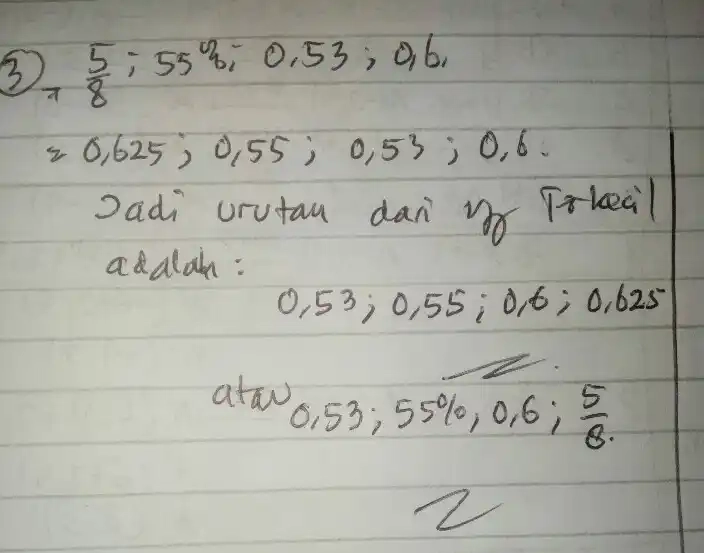 3) 5/8 ; 55%; 0,53 ; 0,6.
= 0,625 ; 0,55 ; 0,53 ; 0,6.
Jadi urutan dari yg Terkecil
adalah :
0,53 ; 0,55 ; 0,6 ; 0,625
atau 0,53 ; 55% ; 0,6 ; 5/8.